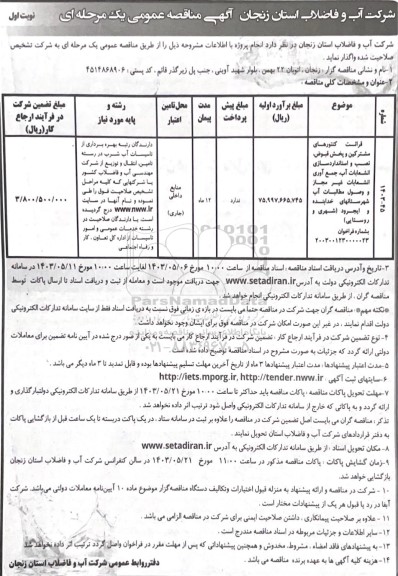 شرکت آب و فاضلاب استان زنجان آگهی مناقصه عمومی یک مرحله ای
نوبت اول
شرکت آب و فاضلاب استان زنجان در نظر دارد انجام پروژه با اطلاعات مشروحه ذیل را از طریق مناقصه عمومی یک مرحله ای به شرکت تشخیص
صلاحیت شده واگذار نماید.
۱-نام و نشانی مناقصه گزار: زنجان، اتوبان ۲۲ بهمن، بلوار شهید آوینی، جنب پل زیر گذر قائم. کد پستی: ۴۵۱۴۸۶۸۹۰۶
۲-عنوان و مشخصات کلی مناقصه:
شماره
موضوع
مبلغ برآورد اولیه (ریال)
مبلغ پیش پرداخت
مدت پیمان
محل تامین اعتبار
رشته و پایه مورد نیاز
مبلغ تضمین شرکت در فرآیند ارجاع کار(ریال)
۱۴۰۳-۴۵
قرائت کنتورهای مشترکین و پخش قبوض نصب و استانداردسازی انشعابات آب جمع آوری انشعابات غیر مجاز وصول مطالبات آب شهرستانهای خدابنده و ایجرود (شهری و روستایی)
بشماره فراخوان
۲۰۰۳۰۰۱۲۳۰۰۰۰۰۲۳
۷۵,۹۹۷,۶۶۵,۷۴۵
ندارد
۱۲ ماه
منابع داخلی (جاری)
دارندگان رتبه بهره برداری از تاسیسات آب شرب در رسته تامین، انتقال و توزیع از شرکت مهندسی آب و فاضلاب کشور یا شرکتهایی که کلیه مراحل تشخیص صلاحیت فوق را طی نموده و نام آنها در سایت www.nww.ir درج گردیده است یا دارندگان صلاحیت در رشته خدمات عمومی و امور تاسیسات از اداره کل تعاون، کار و رفاه اجتماعی
۳/۸۰۰/۵۰۰/۰۰۰
۳-تاریخ و آدرس دریافت اسناد مناقصه: اسناد مناقصه از ساعت ۱۰:۰۰ مورخ ۱۴۰۳/۰۵/۰۶ لغایت ساعت ۱۰:۰۰ مورخ ۱۴۰۳/۰۵/۱۱ در سامانه
تدارکات الکترونیکی دولت به آدرس www.setadiran.ir جهت دریافت موجود است و معامله از ثبت و دریافت اسناد تا ارسال پاکات توسط
مناقصه گران، از طریق سامانه تدارکات الکترونیکی انجام خواهد شد.
«نکته مهم»: مناقصه گران جهت شرکت در مناقصه حتماً می بایست در بازه ی زمانی فوق نسبت به دریافت اسناد فقط از سایت سامانه تدارکات الکترونیکی
دولت اقدام نمایند. در غیر این صورت امکان شرکت در مناقصه فوق برای ایشان وجود نخواهد داشت
۴- نوع تضمین شرکت در فرآیند ارجاع کار: تضمین شرکت در فرآیند ارجاع کار می بایست به یکی از صور درج شده در آیین نامه تضمین برای معاملات
دولتی ارائه گردد که جزئیات به صورت مشروح در اسناد مناقصه توضیح داده شده است.
۵-مدت اعتبار پیشنهادها: مدت اعتبار پیشنهادها ۳ ماه از تاریخ آخرین مهلت تسلیم پیشنهادها بوده و قابل تمدید تا ۳ ماه دیگر می باشد.
۶-سایتهای ثبت آگهی: http://iets.mporg.ir, http://tender.nww.ir
۷-مهلت تحویل پاکات مناقصه: پاکات مناقصه باید حداکثر تا ساعت ۱۰:۰۰ مورخ ۱۴۰۳/۰۵/۲۱ از طریق سامانه تدارکات الکترونیکی دولت بارگذاری و
ارائه گردد و به پاکاتی که خارج از سامانه تدارکات الکترونیکی واصل شود ترتیب اثر داده نخواهد شد.
تذکر: مناقصه گران می بایست اصل تضمین شرکت در مناقصه را علاوه بر ثبت در سامانه ستاد، در یک پاکت دربسته تا یک ساعت قبل از بازگشایی پاکات
به دفتر قراردادهای شرکت آب و فاضلاب استان تحویل نمایند.
۸- مکان تحویل اسناد: از طریق سامانه تدارکات الکترونیکی به آدرس www.setadiran.ir
۹-زمان گشایش پاکات: پاکات مناقصه مذکور در ساعت ۱۱:۰۰ مورخ ۱۴۰۳/۰۵/۲۱ در سالن کنفرانس شرکت آب و فاضلاب استان زنجان
بازگشایی خواهد شد.
۱۰- شرکت در مناقصه و ارائه پیشنهاد به منزله قبول اختیارات وتکالیف دستگاه مناقصه گزار موضوع ماده ۱۰ آیین‌نامه معاملات دولتی می‌باشد. شرکت
آبفا در رد یا قبول هر یک از پیشنهادات مختار است.
۱۱- علاوه بر صلاحیت پیمانکاری، داشتن صلاحیت ایمنی برای شرکت در مناقصه الزامی می باشد.
۱۲- سایر اطلاعات و جزئیات مربوطه در اسناد مناقصه مندرج است.
۱۳- به پیشنهادهای فاقد امضاء، مشروط، مخدوش و همچنین پیشنهاداتی که پس از مهلت مقرر در فراخوان واصل گردد ترتیب اثر داده نخواهد شد.
۱۴- هزینه کلیه آگهی ها به عهده برنده مناقصه می باشد.
دفتر روابط عمومی شرکت آب و فاضلاب استان زنجان